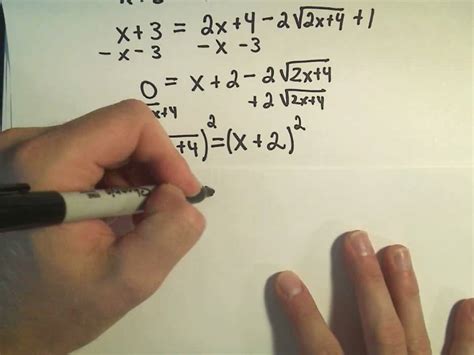 x + 3 = 2x+4 - 2√(2x+4) + 1
- x - 3 - x - 3
0 = x + 2 - 2√(2x+4)
x+4 + 2√(2x+4)
+4)² = (x + 2)²